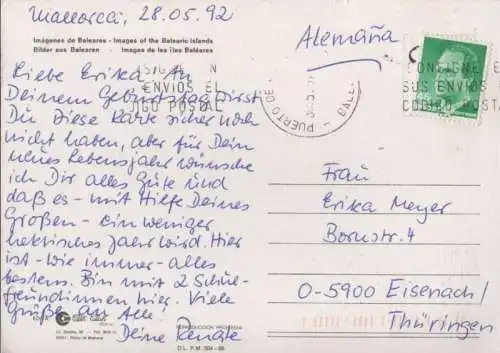 Mallorca, 28.05.92
Imágenes de Baleares - Images of the Balearic Islands
Bilder aus Balearen - Images de les îles Baléares
Alemaña
Liebe Erika! An
Deinem Geburtstag wirst
Du diese Karte sicher noch
nicht haben, aber für Dein
neues Lebensjahr wünsche
ich Dir alles Gute und
daß es - mit Hilfe Deines
Großen - ein weniger
hektisches Jahr wird. Hier
ist - wie immer - alles
bestens. Bin mit 2 Schul-
freundinnen hier. Viele
Grüße an Alle!
Deine Renate
ENVIOS EL
POSTAL
PUERTO DE
CONSIGNE E
SUS ENVIOS
CODIGO POSTA
45
Frau
Erika Meyer
Bornstr. 4
O-5900 Eisenach/
Thüringen
REPRODUCCION PROHIBIDA
D.L. P.M.